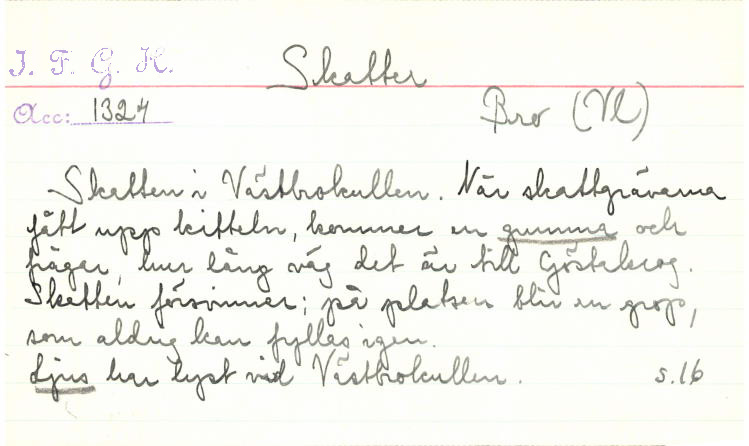 I. F. G. H.
Skatter
Acc: 1324
Bro (Vl)
Skatten i Västbrokullen. När skattgrävarna
fått upp kitteln, kommer en gumma och
frågar, hur lång väg det är till Götaborg.
Skatten försvinner; på platsen blir en grop,
som aldrig kan fyllas igen.
Ljus har lyst vid Västbrokullen. s. 16